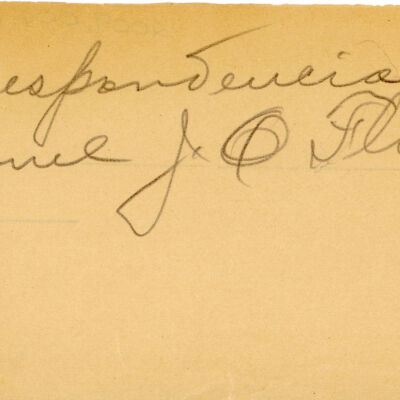 respondencia
nel J. O Fl